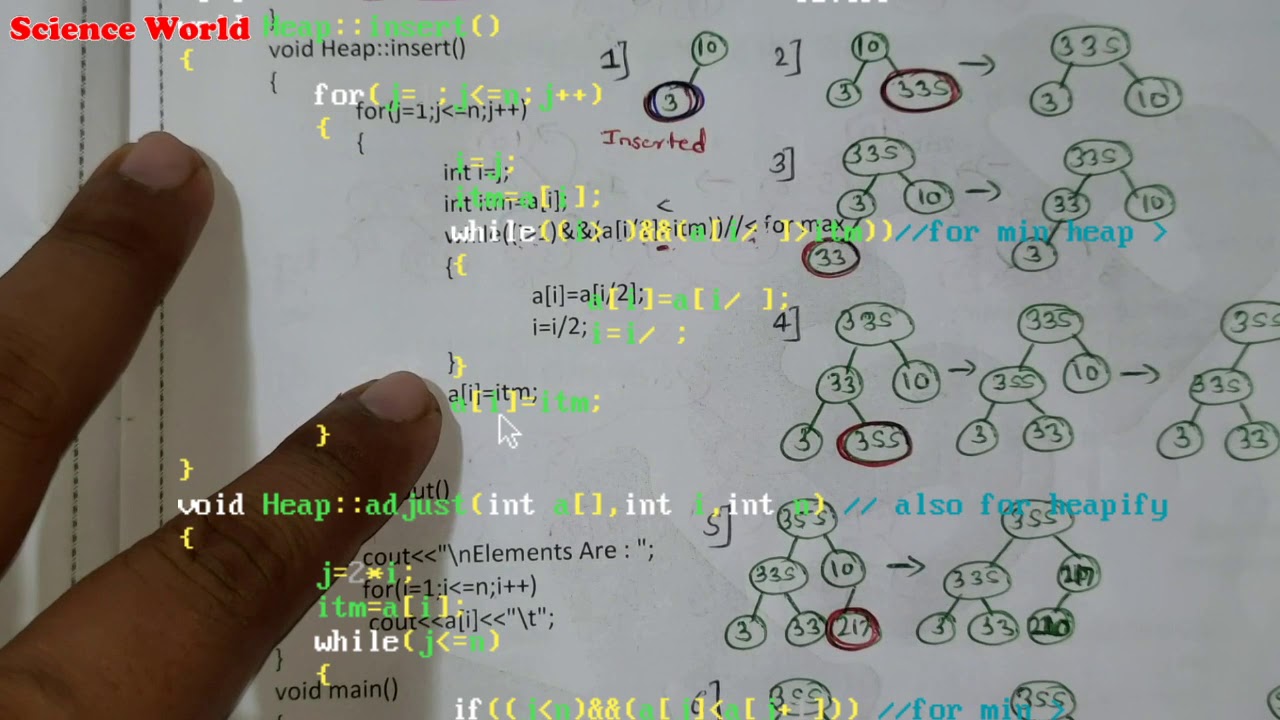 Science World
Heap::insert()
void Heap::insert()
{
{
for(j= ;j<=n;j++)
for(j=1;j<=n;j++)
{
{
i=j;
int i=j;
itm=a[i];
int itm=a[i];
<
while((i> )&&(a[i/ ]>itm))//for min heap >
//< for max
{
{
a[i]=a[i/2];
a[i]=a[i/ ];
i=i/2;
i=i/ ;
}
}
a[i]=itm;
a[i]=itm;
}
}
void Heap::adjust(int a[],int i,int n) // also for heapify
{
cout<<"\nElements Are : ";
j=2*i;
for(i=1;i<=n;i++)
itm=a[i];
cout<<a[i]<<"\t";
while(j<=n)
}
{
void main()
if((j<n)&&(a[j]<a[j+ ])) //for min >
1]
10
3
Inserted
2]
10
3 335
→
335
3 10
3]
335
3 10
33
→
335
33 10
3
4]
335
33 10
3 355
→
335
355 10
3 33
→
355
335
3 33
5]
355
335 10
3 33 217
→
355
335 217
3 33
355
355